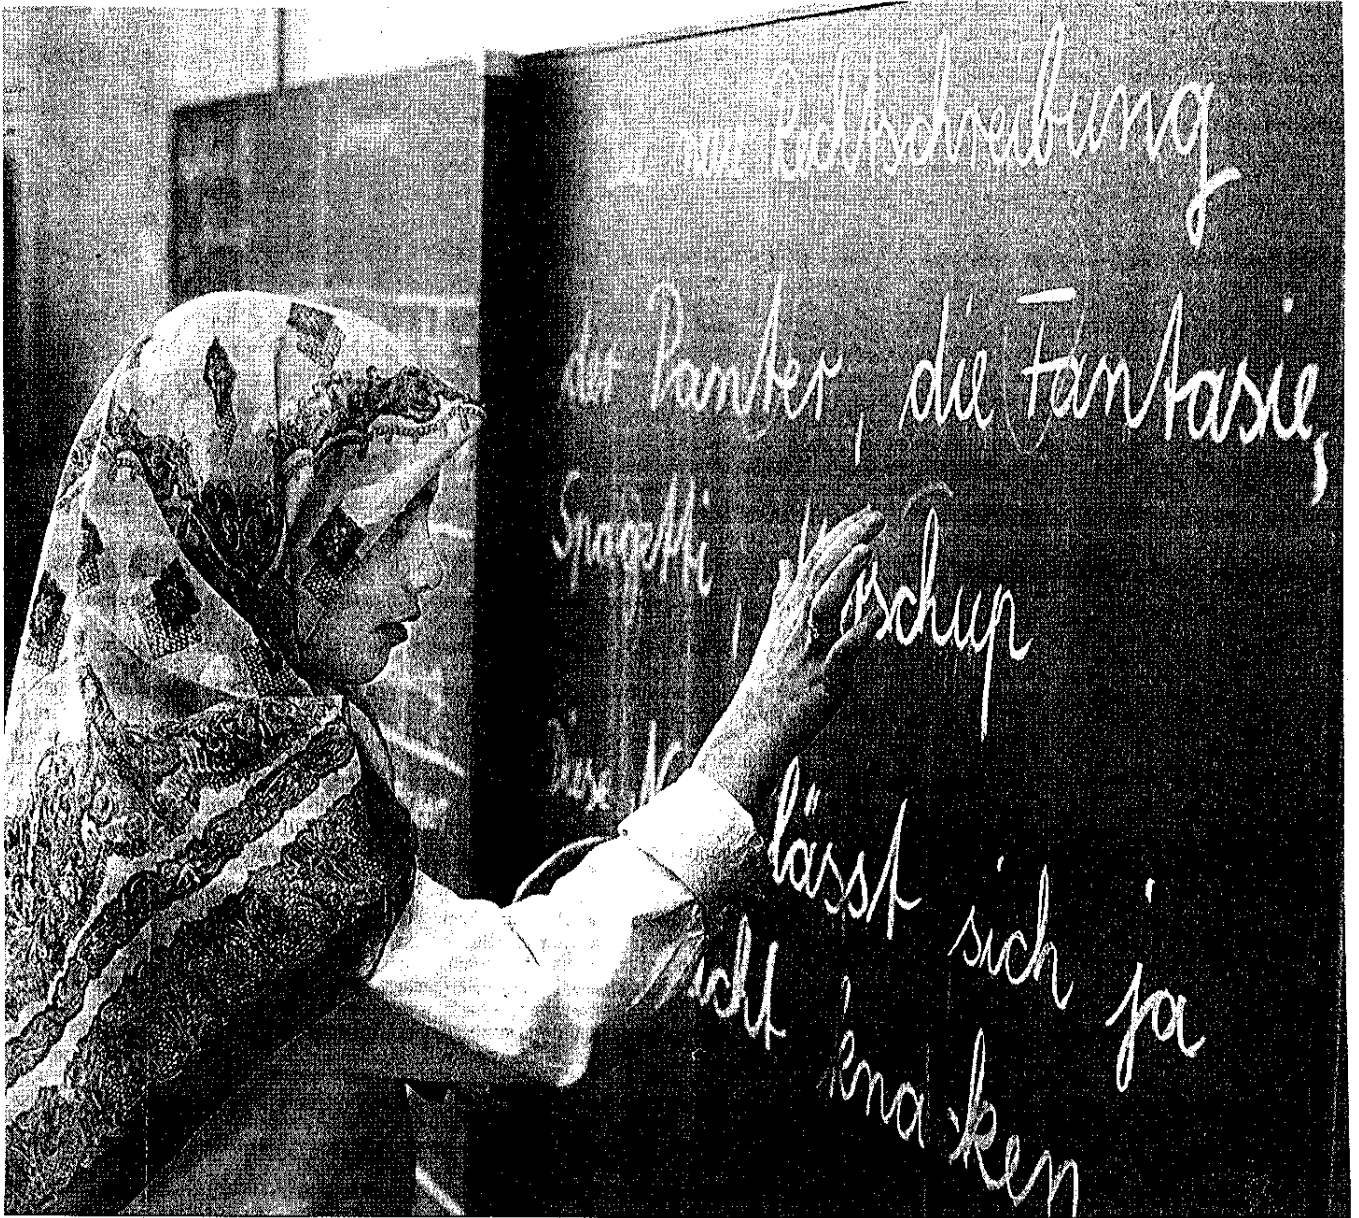 zur Rechtschreibung
der Panter, die Fantasie,
Spagetti, schup
Diese lässt sich ja
icht kna-ken